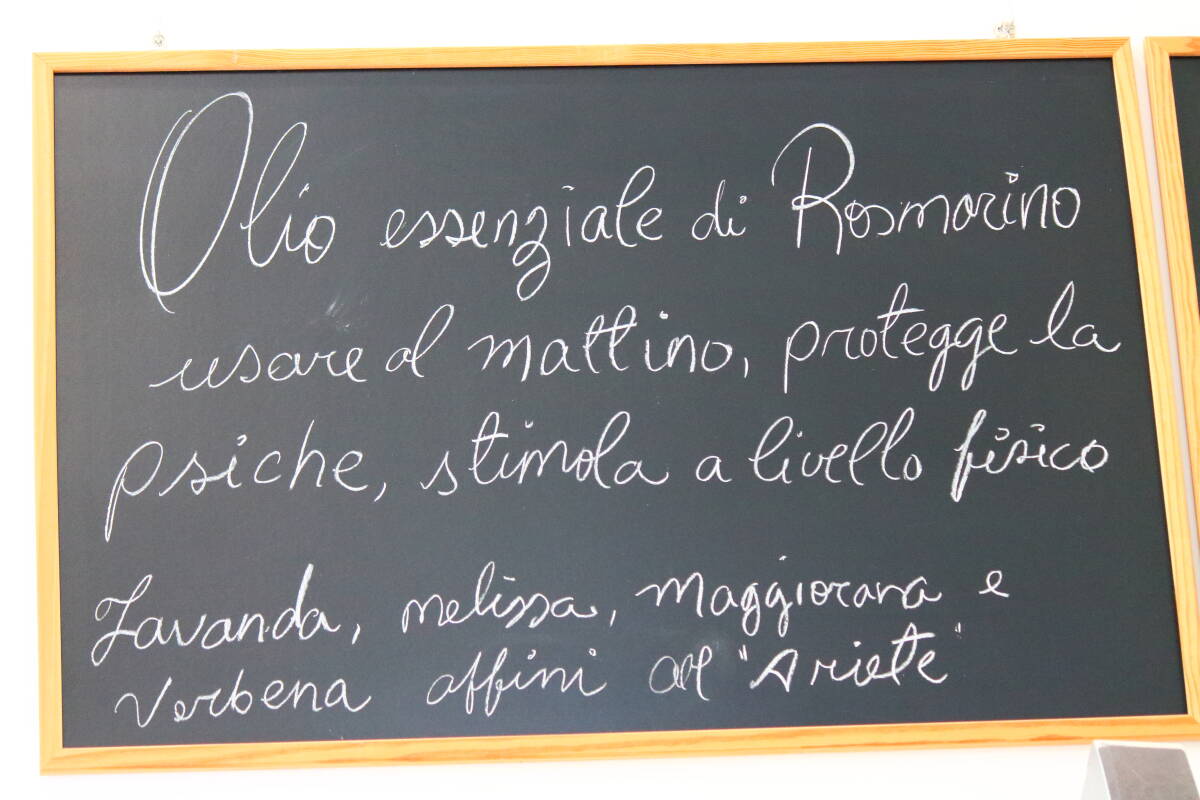 Olio essenziale di Rosmarino
usare al mattino, protegge la
psiche, stimola a livello fisico
Lavanda, melissa, maggiorana e
Verbena affini all "Ariete"